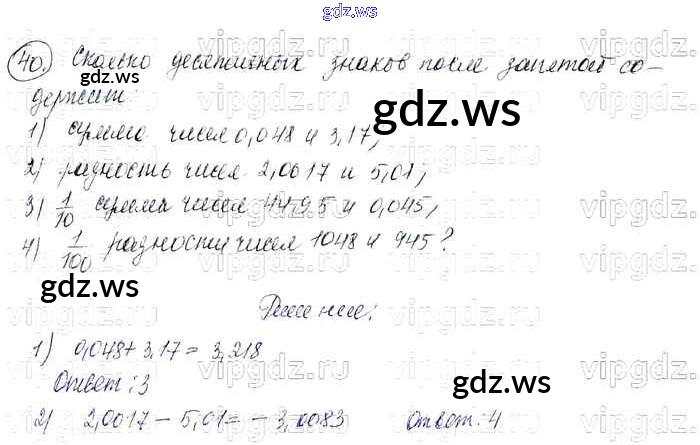 gdz.ws
40. Сколько десятичных знаков после запятой со-
gdz.ws
держит:
gdz.ws
1) сумма чисел 0,048 и 3,17;
2) разность чисел 2,0017 и 5,01;
3) 1/10 суммы чисел 44,95 и 0,045;
4) 1/100 разности чисел 1048 и 945?
gdz.ws
Решение:
1) 0,048 + 3,17 = 3,218
gdz.ws
Ответ: 3
2) 2,0017 - 5,01 = - 3,0083 Ответ: 4
gdz.ws
vipgdz.ws